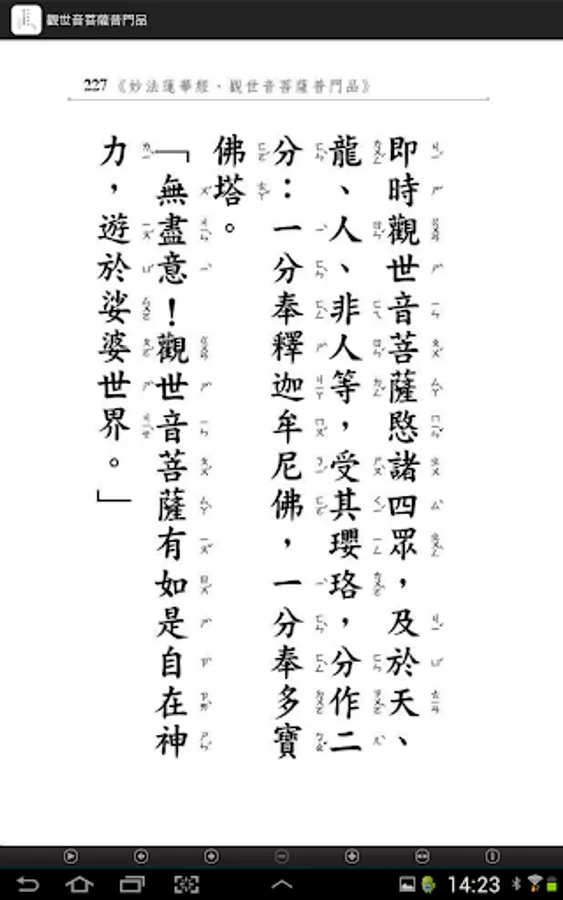 觀世音菩薩普門品
227《妙法蓮華經·觀世音菩薩普門品》
即時觀世音菩薩愍諸四眾，及於天、
龍、人、非人等，受其瓔珞，分作二
分：一分奉釋迦牟尼佛，一分奉多寶
佛塔。
「無盡意！觀世音菩薩有如是自在神
力，遊於娑婆世界。」
14:23